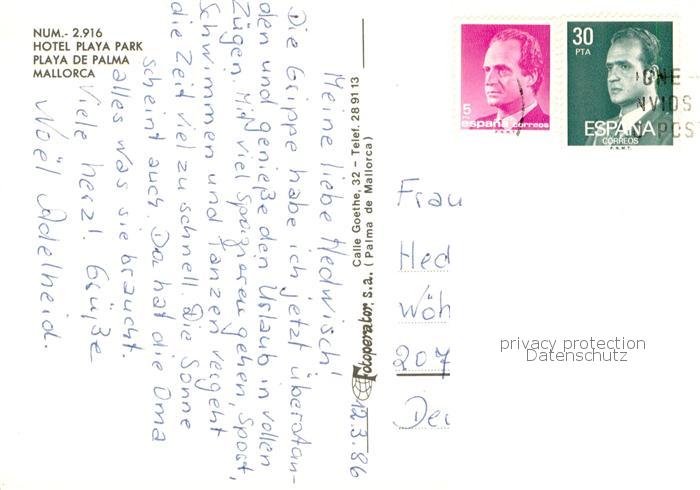 NUM.- 2.916
HOTEL PLAYA PARK
PLAYA DE PALMA
MALLORCA
12.3.86
Meine liebe Hedwisch!
Die Grippe habe ich jetzt überstan-
den und genieße den Urlaub in vollen
Zügen. Mit viel Spazierengehen, Sport,
Schwimmen und Tanzen vergeht
die Zeit viel zu schnell. Die Sonne
scheint auch. Da hat die Oma
alles was sie braucht.
Viele herzl. Grüße
Noël Adelheid.
Fotoperator, s.a. Calle Goethe, 32 - Telef. 28 91 13
(Palma de Mallorca)
5
PTA
españa correos
F.N.M.T.
30
PTA
ESPAÑA
CORREOS
F.N.M.T.
NVIOS
POST
Frau
Hed
Wöh
207
Deu
privacy protection
Datenschutz